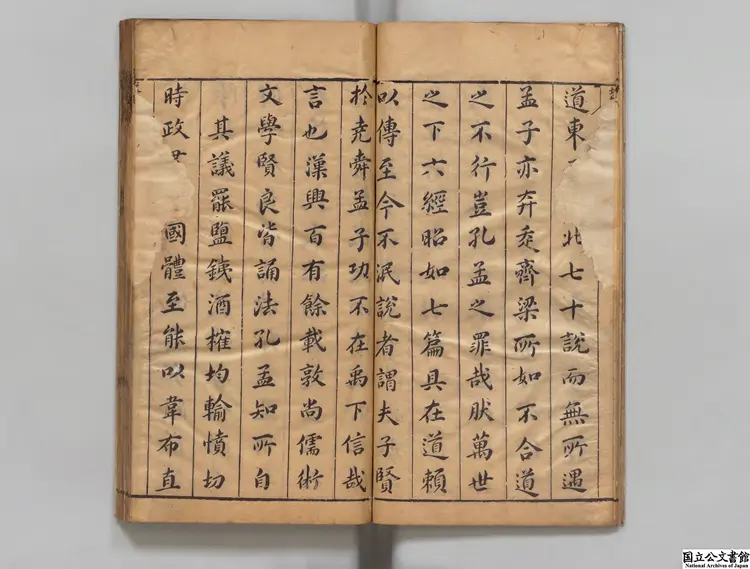 道東 北七十說而無所遇
孟子亦奔走齊梁所如不合道
之不行豈孔孟之罪哉肰萬世
之下六經昭如七篇具在道賴
以傳至今不泯說者謂夫子賢
於堯舜孟子功不在禹下信哉
言也漢興百有餘載敦尚儒術
文學賢良皆誦法孔孟知所自
其議罷鹽銕酒榷均輸憤切
時政 國體至能以韋布直
国立公文書館
National Archives of Japan